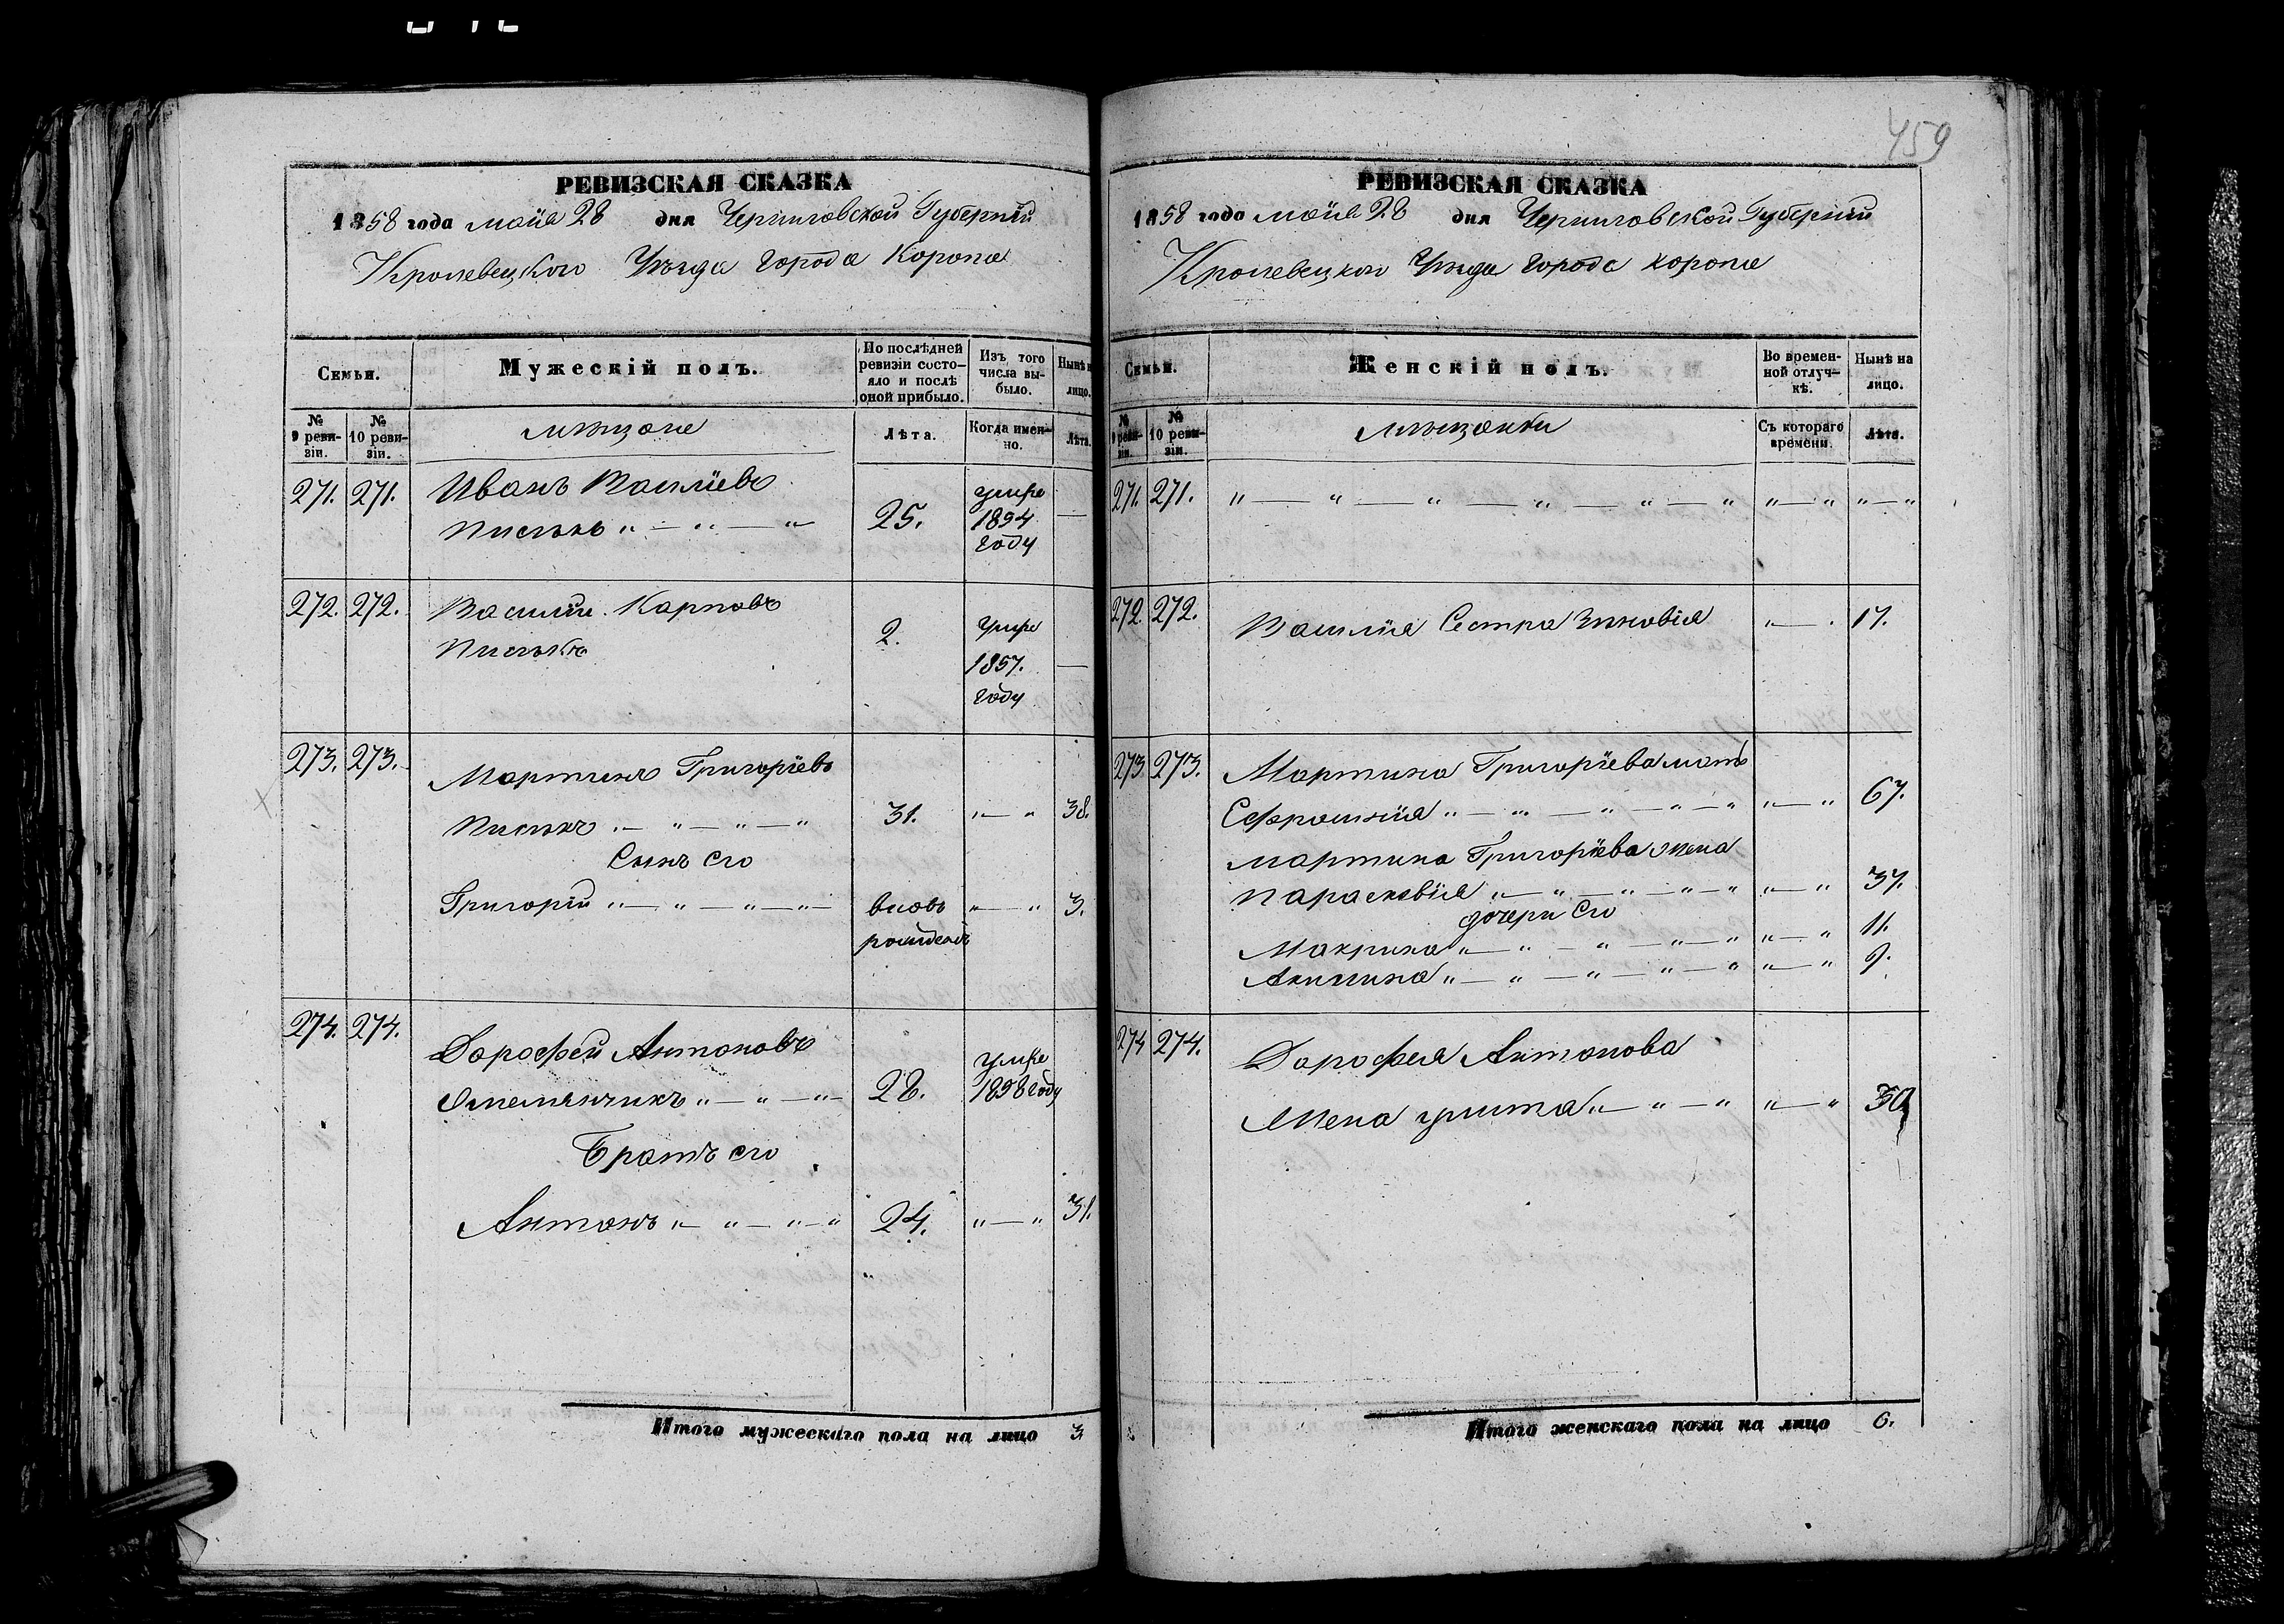 459
РЕВИЗСКАЯ СКАЗКА
1858 года маія 28 дня Черниговской Губерніи
Кролевецкого Уѣзда города Коропа
Семьи.
Мужескій полъ.
По послѣдней ревизіи состояло и послѣ оной прибыло.
Изъ того числа выбыло.
Нынѣ на лицо.
№ 9 ревизіи.
№ 10 ревизіи.
мѣщане
Лѣта.
Когда именно.
Лѣта.
271. 271. Иванъ Василіевъ умре
25. 1854
году
272. 272. Василій Карповъ
2. умре
1857.
году
273. 273. Мартинъ Григоріевъ
31. 38.
Сынъ его
Григорій вновь 3.
рожденъ
274. 274. Дорофей Антоновъ умре
28. 1858 году
Братъ его
Антонъ 24. 31.
Итого мужескаго пола на лицо 3
РЕВИЗСКАЯ СКАЗКА
1858 года маія 28 дня Черниговской Губерніи
Кролевецкого Уѣзда города Коропа
Семьи.
Женскій полъ.
Во временной отлучкѣ.
Нынѣ на лицо.
№ 9 ревизіи.
№ 10 ревизіи.
мѣщанки
Съ котораго времени.
Лѣта.
271. 271.
272. 272. Василія Сестра Зиновія 17.
273 273. Мартина Григоріева мать
Ефросинія 67.
Мартина Григоріева жена
Параскевія 37.
дочери его
Макрина 11.
Акилина 9.
274 274. Дорофея Антонова
Жена улита 30
Итого женскаго пола на лицо 6.